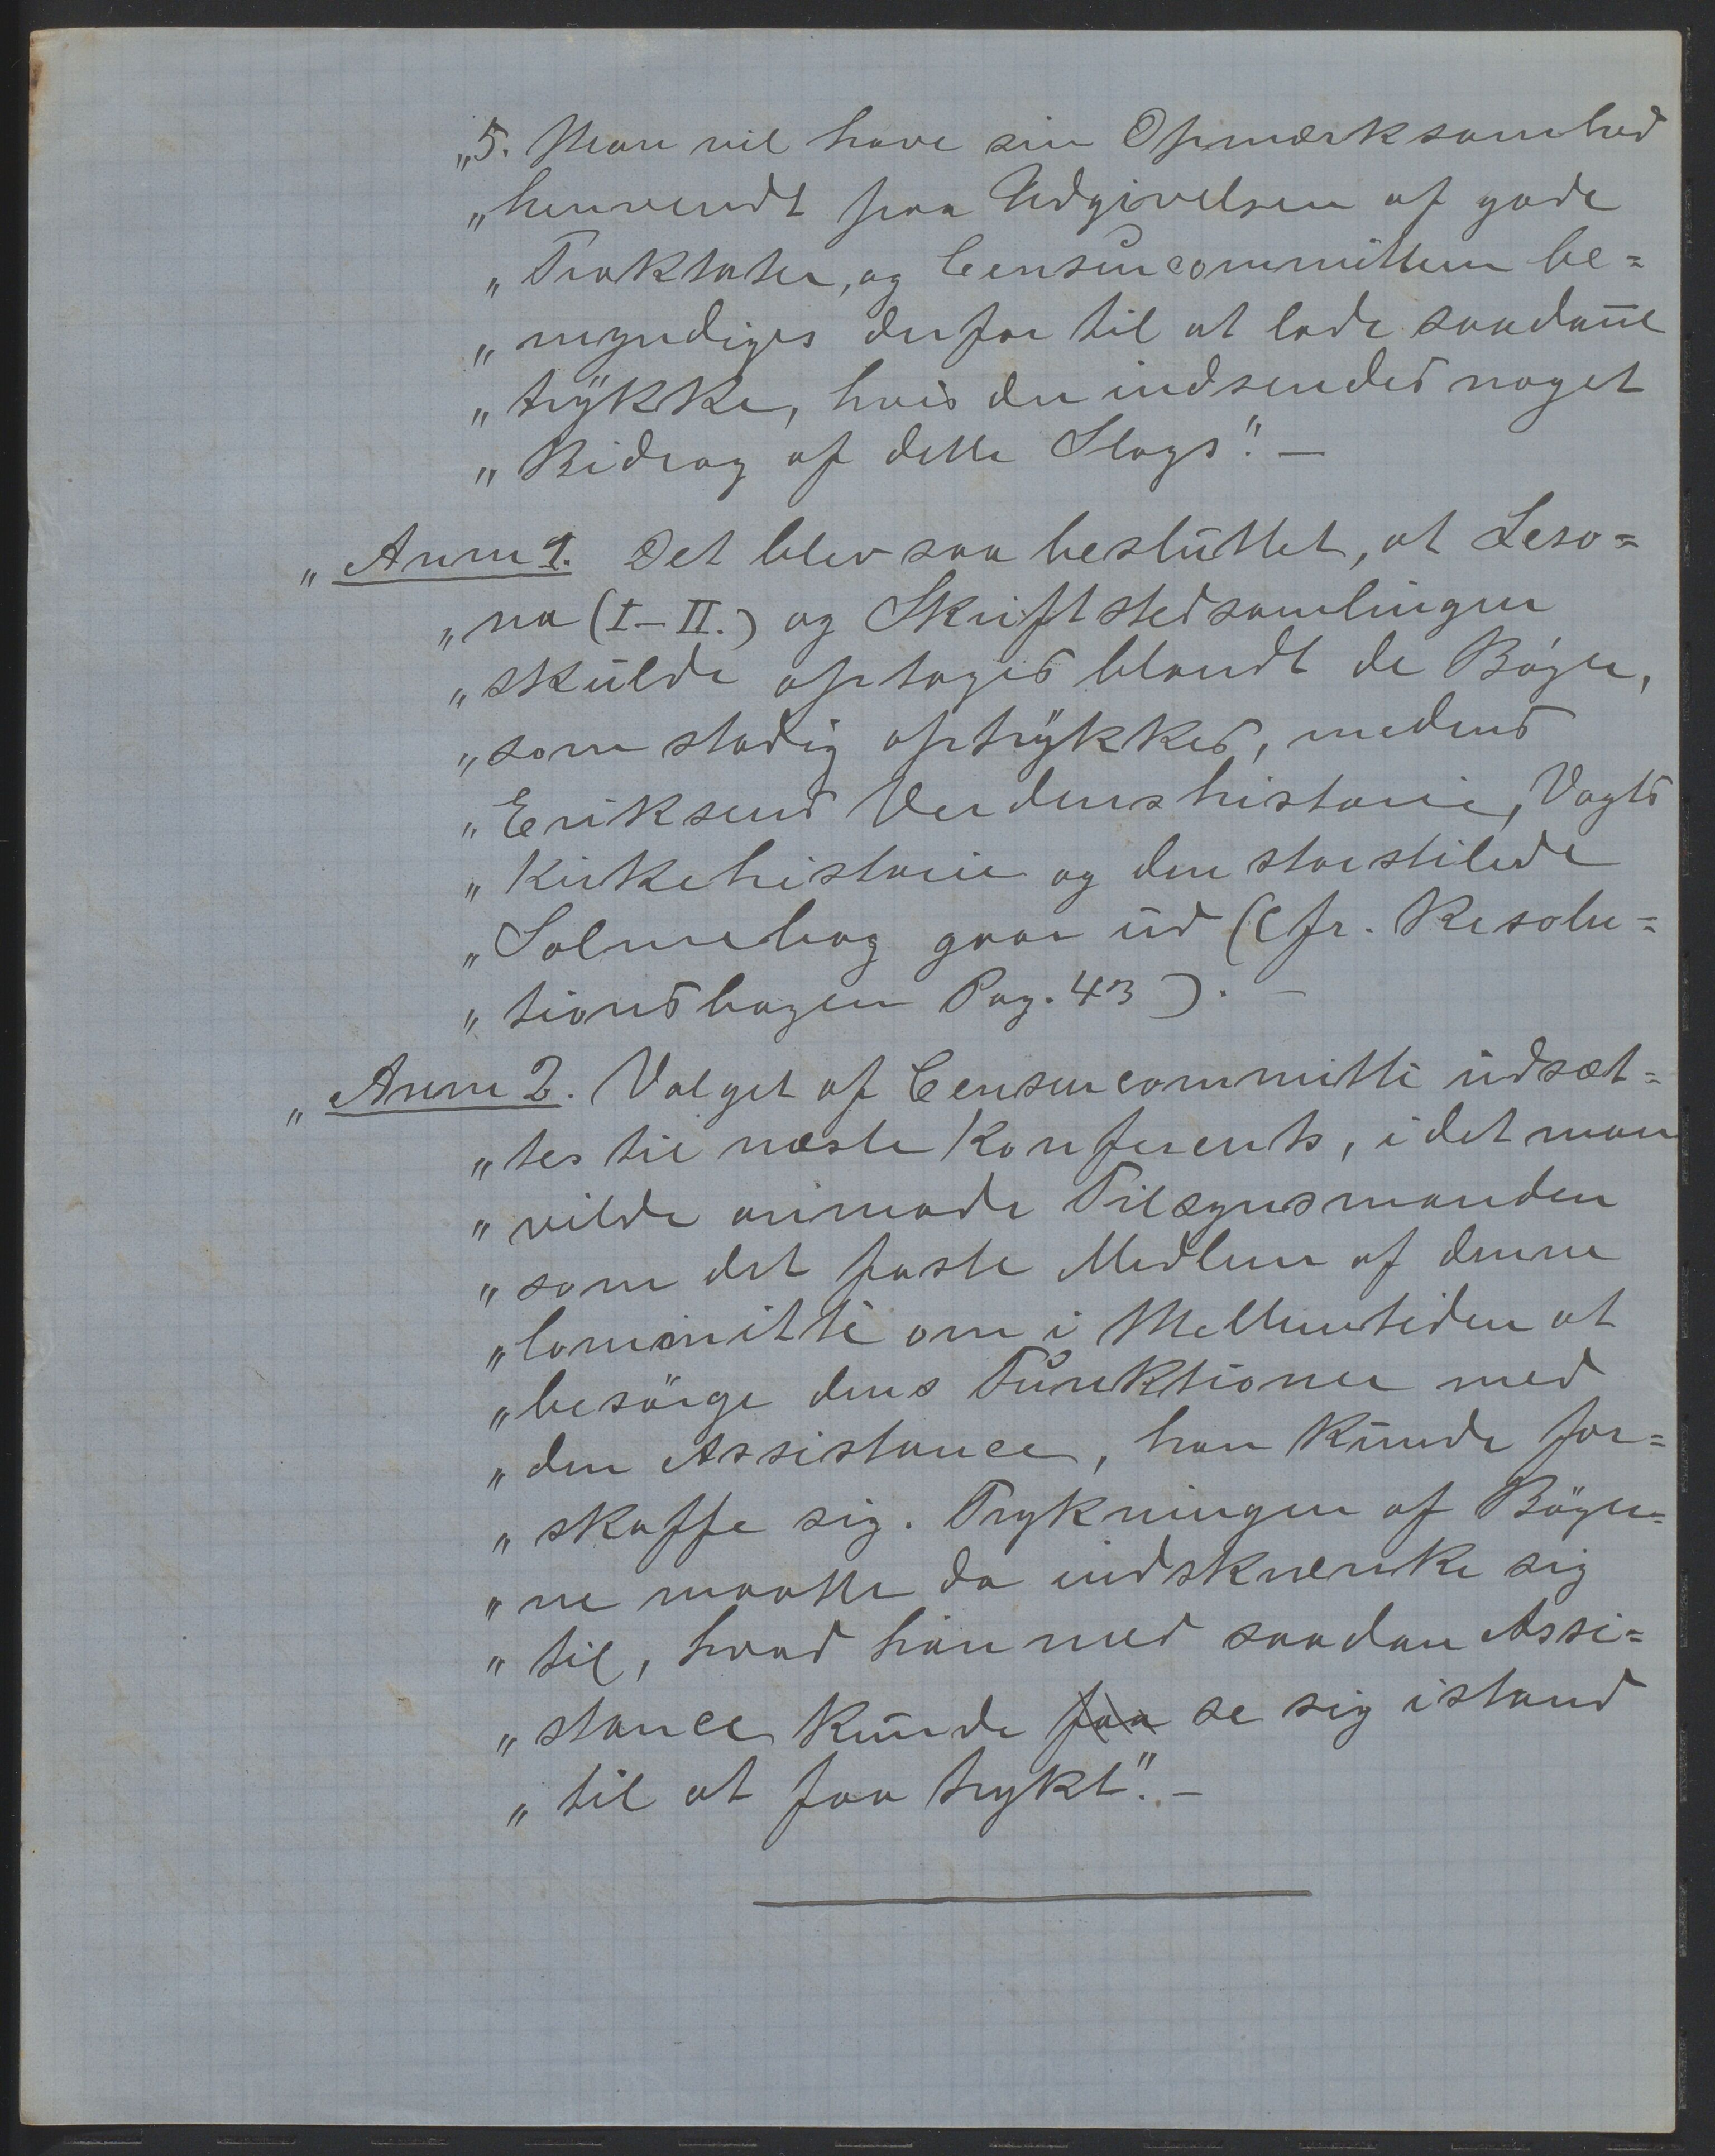 „5. Man vil have sin Opmærksomhed
„henvendt paa Udgivelsen af gode
„Traktater, og Censurcommitteen be=
„myndiges derfor til at lade saadanne
„trykke, hvis der indsendes noget
„Bidrag af dette Slags". —
„Anm 1. Det blev saa besluttet, at Leso=
„na (I–II.) og Skriftstedsamlingen
„skulde optages blandt de Bøger,
„som stadig optrykkes, medens
„Eriksens Verdenshistorie, Vogts
„Kirkehistorie og den storstilede
„Salmebog gaar ud (Cfr. Resolu=
„tionsbogen Pag. 43). —
„Anm 2. Valget af Censurcommitté udsæt=
„tes til næste Konferents, idet man
„vilde anmode Tilsynsmanden
„som det faste Medlem af denne
„Committé om i Mellemtiden at
„besörge dens Funktioner med
„den Assistance, han kunde for=
„skaffe sig. Trykningen af Böger=
„ne maatte da indskrænke sig
„til, hvad han med saadan Assi=
„stance kunde faa se sig istand
„til at faa trykt". —